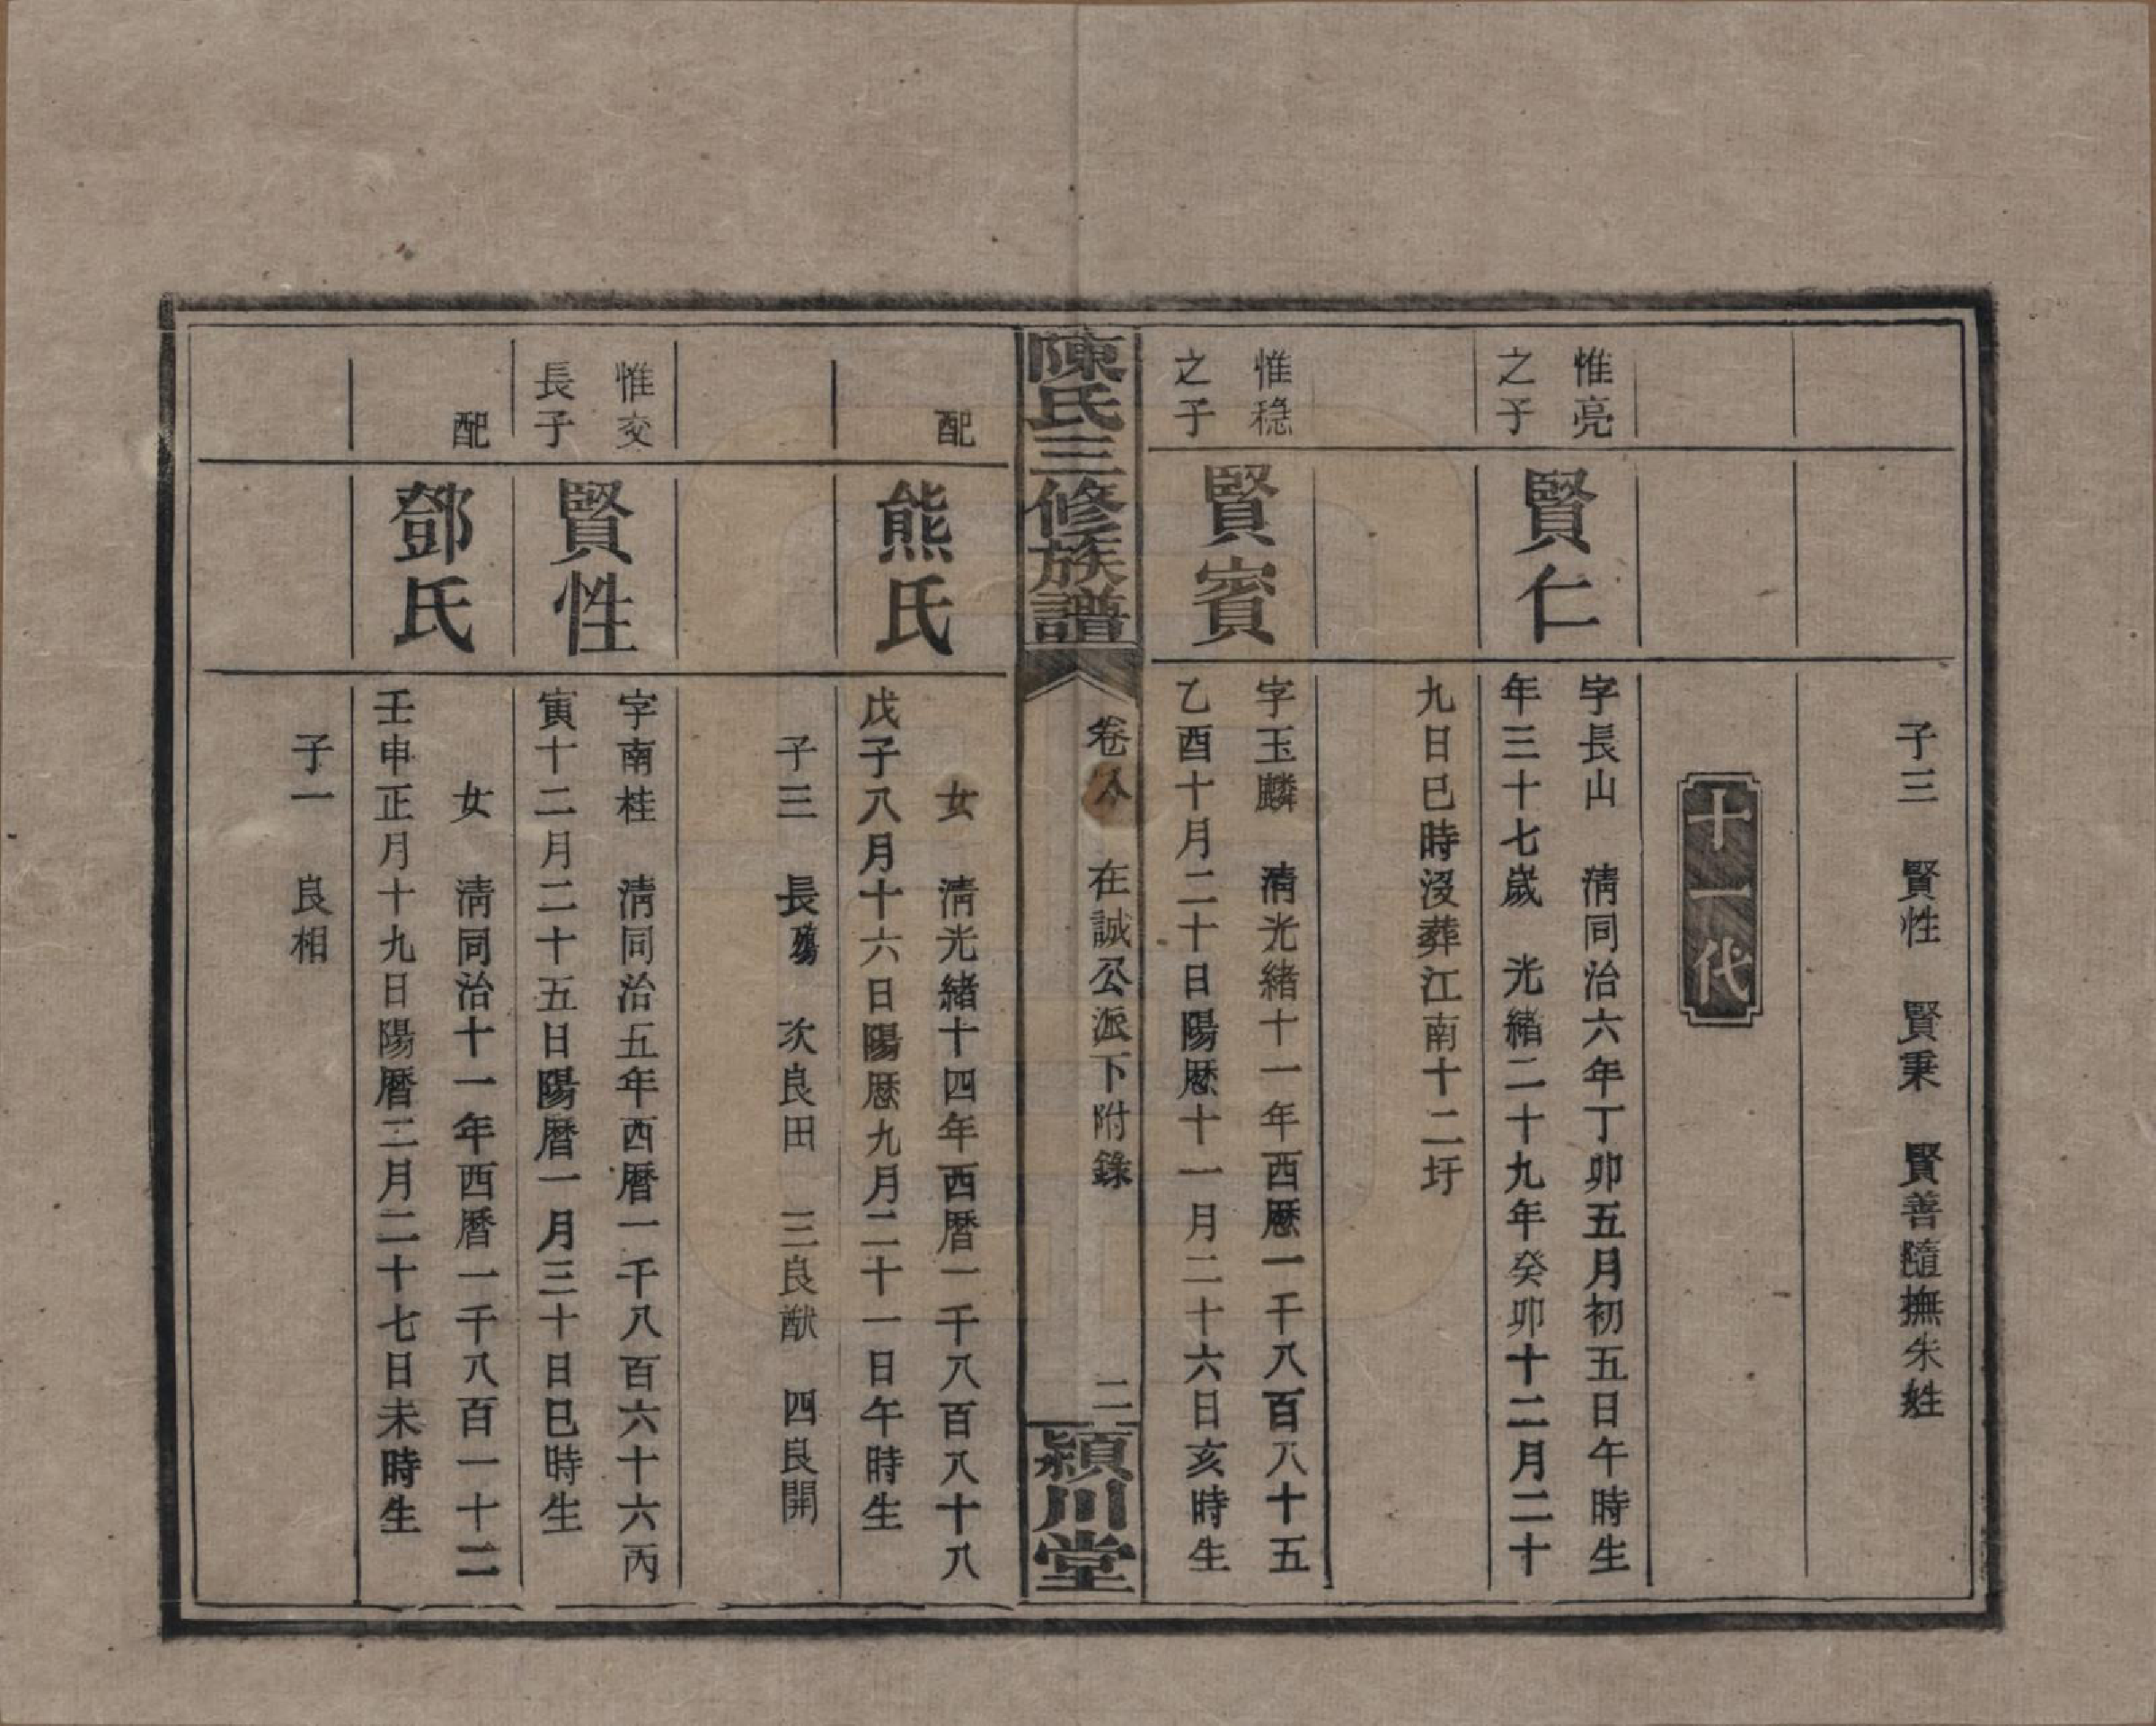 子三　賢性　賢秉　賢善隨撫朱姓
十一代
惟亮
之子
賢仁
字長山　淸同治六年丁卯五月初五日午時生
年三十七歲　光緒二十九年癸卯十二月二十
九日巳時沒葬江南十二圩
惟穏
之子
賢賓
字玉麟　淸光緒十一年西歷一千八百八十五
乙酉十月二十日陽歷十一月二十六日亥時生
陳氏三修族譜
卷　在誠公派下附錄
二
潁川堂
配
熊氏
女　淸光緒十四年西曆一千八百八十八
戊子八月十六日陽歷九月二十一日午時生
子三　長殤　次良田　三良猷　四良開
惟交
長子
賢性
字南桂　淸同治五年西曆一千八百六十六丙
寅十二月二十五日陽曆一月三十日巳時生
配
鄧氏
女　淸同治十一年西曆一千八百一十二
壬申正月十九日陽曆二月二十七日未時生
子一　良相